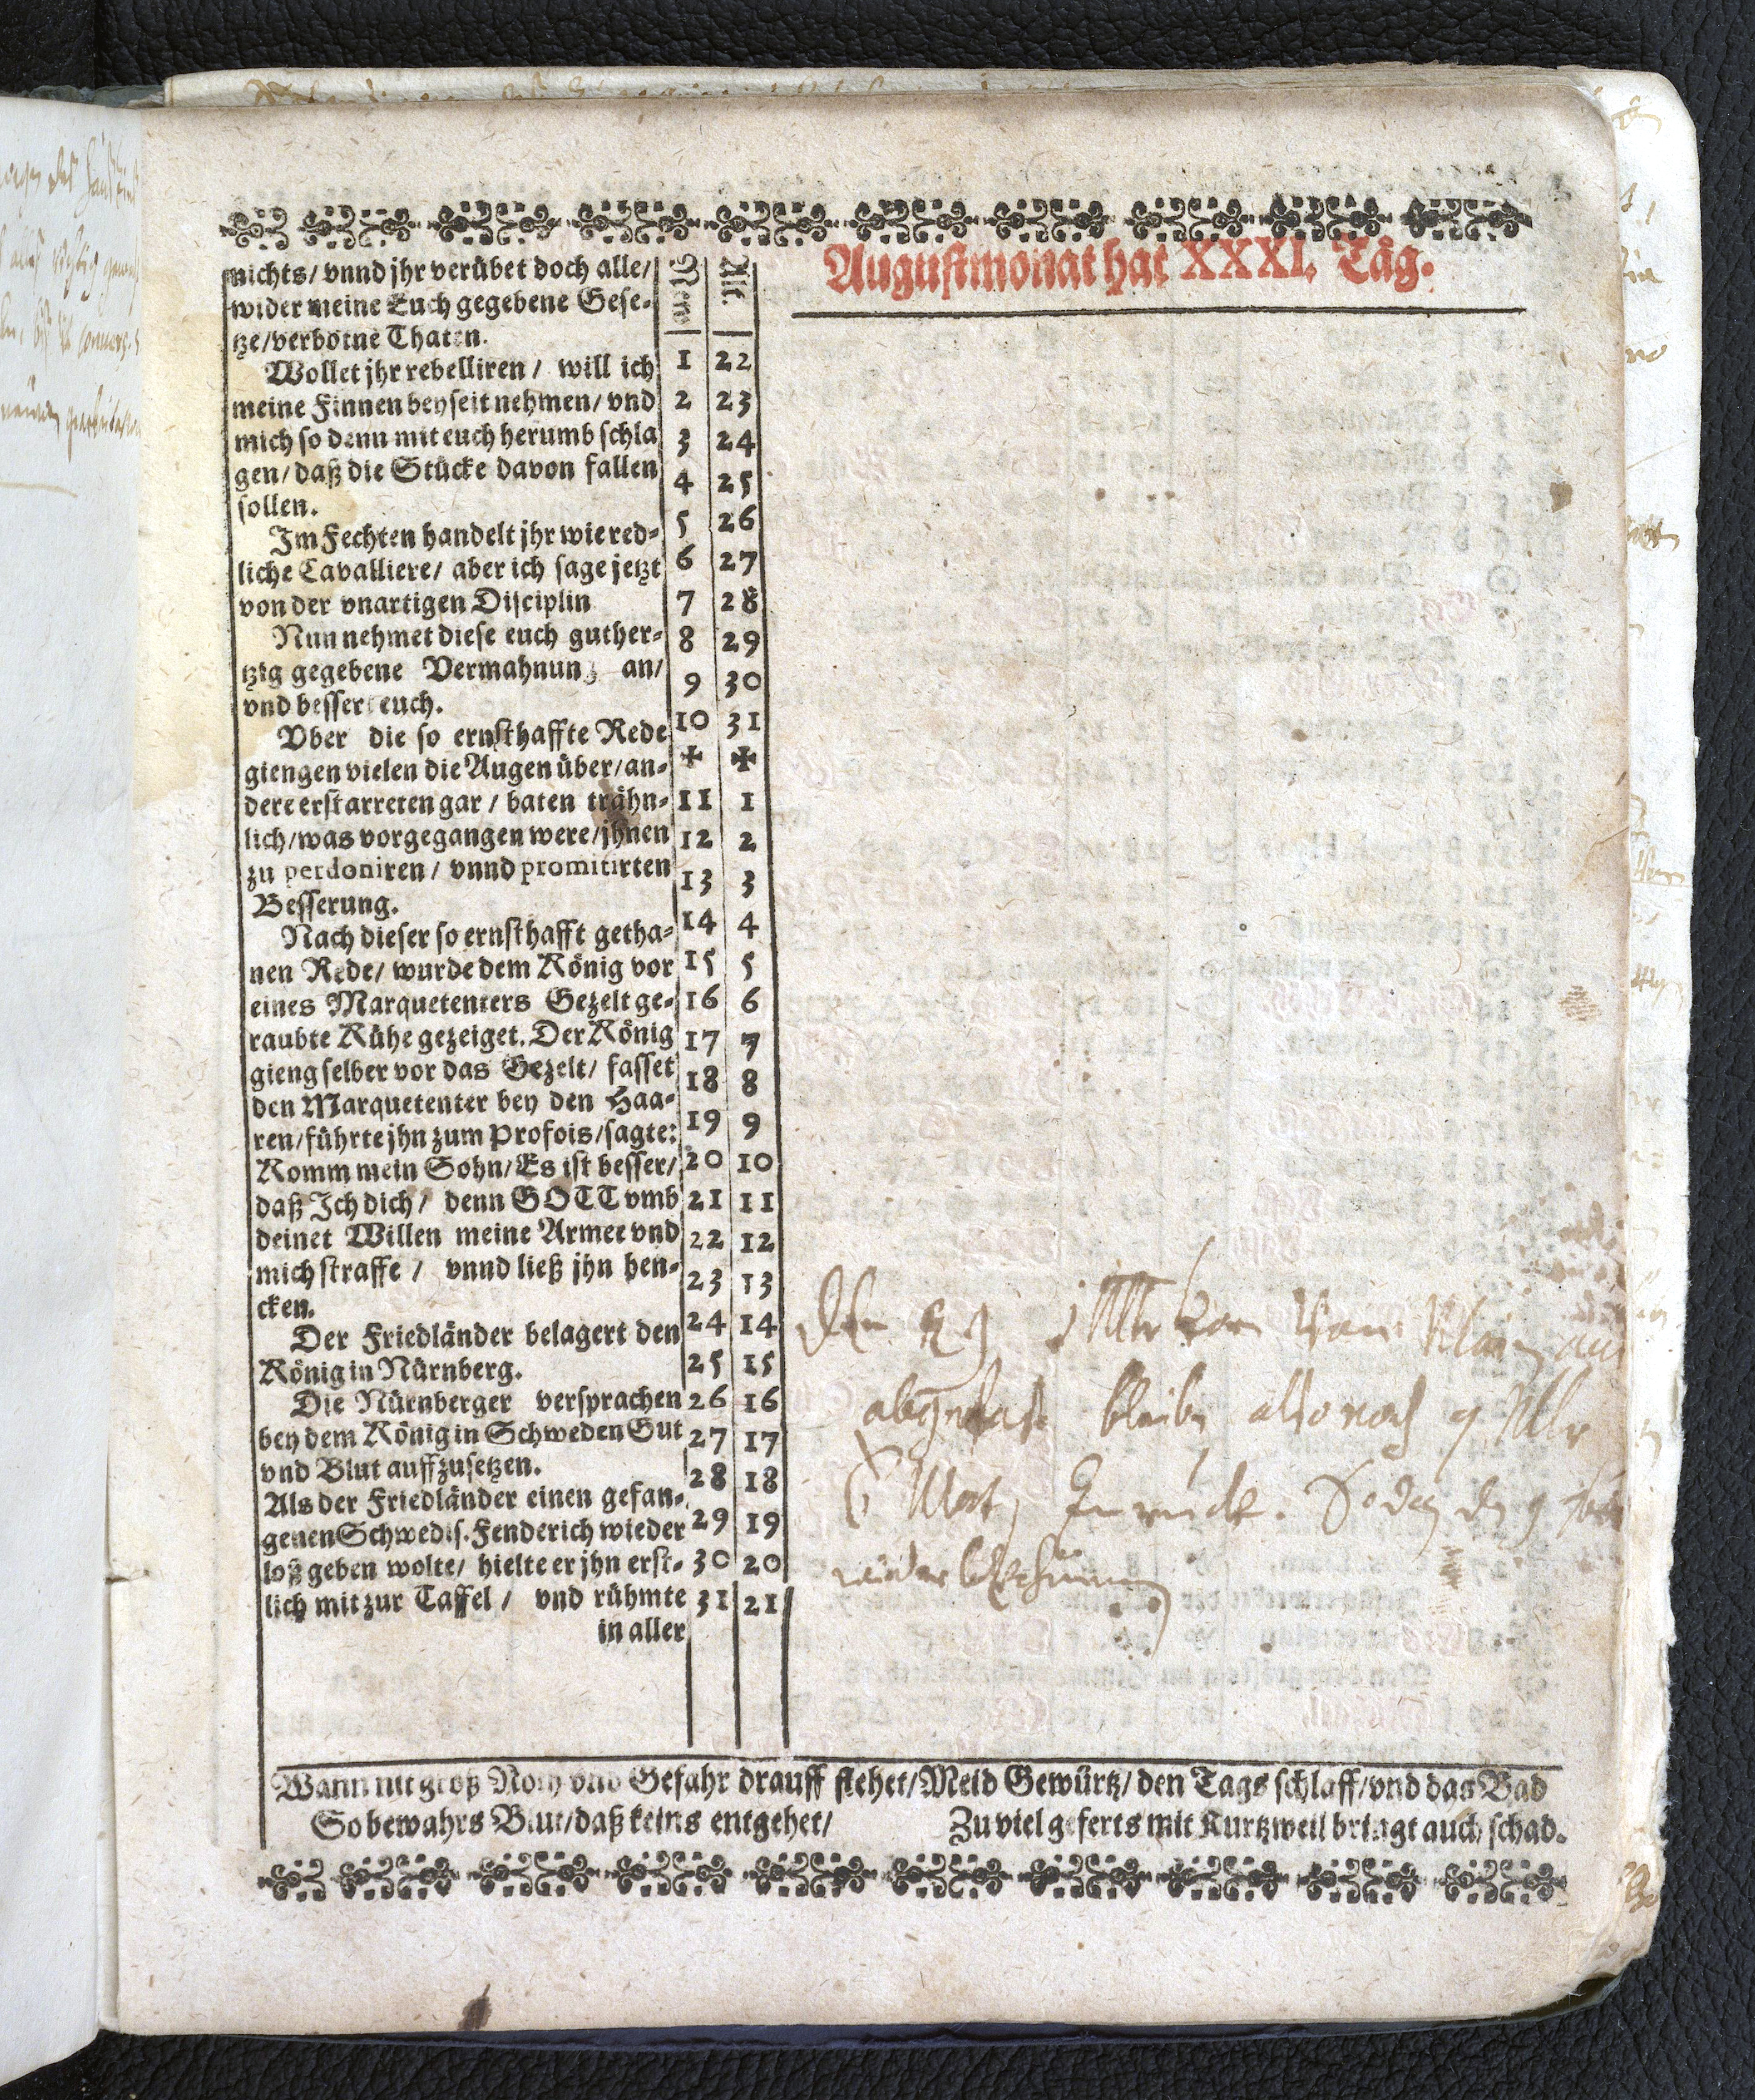 Augustmonat hat XXXI. Täg.
nichts/ vnnd jhr verübet doch alle/
wider meine Euch gegebene Gese-
tze/verbotne Thaten.
Wollet jhr rebelliren / will ich
meine Finnen beyseit nehmen/ vnd
mich so denn mit euch herumb schla
gen/ daß die Stücke davon fallen
sollen.
Im Fechten handelt jhr wie red-
liche Cavalliere/ aber ich sage jetzt
von der vnartigen Disciplin
Nun nehmet diese euch guther-
tzig gegebene Vermahnung an/
vnd bessert euch.
Vber die so ernsthaffte Rede
giengen vielen die Augen über/ an-
dere erstarreten gar / baten trähn-
lich/was vorgegangen were/jhnen
zu perdoniren / vnnd promitirten
Besserung.
Nach dieser so ernsthafft getha-
nen Rede/ wurde dem König vor
eines Marquetenters Gezelt ge-
raubte Kühe gezeiget. Der König
gieng selber vor das Gezelt/ fasset
den Marquetenter bey den Haa-
ren/führte jhn zum Profois/sagte:
Komm mein Sohn/ Es ist besser/
daß Ich dich / denn GOTT vmb
deinet Willen meine Armee vnd
mich straffe / vnnd ließ jhn hen-
cken.
Der Friedländer belagert den
König in Nürnberg.
Die Nürnberger versprachen
bey dem König in Schweden Gut
vnd Blut auffzusetzen.
Als der Friedländer einen gefan-
genen Schwedis. Fenderich wieder
loß geben wolte/ hielte er jhn erst-
lich mit zur Taffel / vnd rühmte
in aller
New Alt
1 22
2 23
3 24
4 25
5 26
6 27
7 28
8 29
9 30
10 31
✠ ✠
11 1
12 2
13 3
14 4
15 5
16 6
17 7
18 8
19 9
20 10
21 11
22 12
23 13
24 14
25 15
26 16
27 17
28 18
29 19
30 20
31 21
Den
bleiben also noch 9 Mlr
Wann nit groß Noth vnd Gefahr drauff stehet/ Meid Gewürtz/ den Tags schlaff/ vnd das Bad
So bewahrs Blut/daß keins entgehet/ Zu viel geferts mit Kurtzweil bringt auch schad.